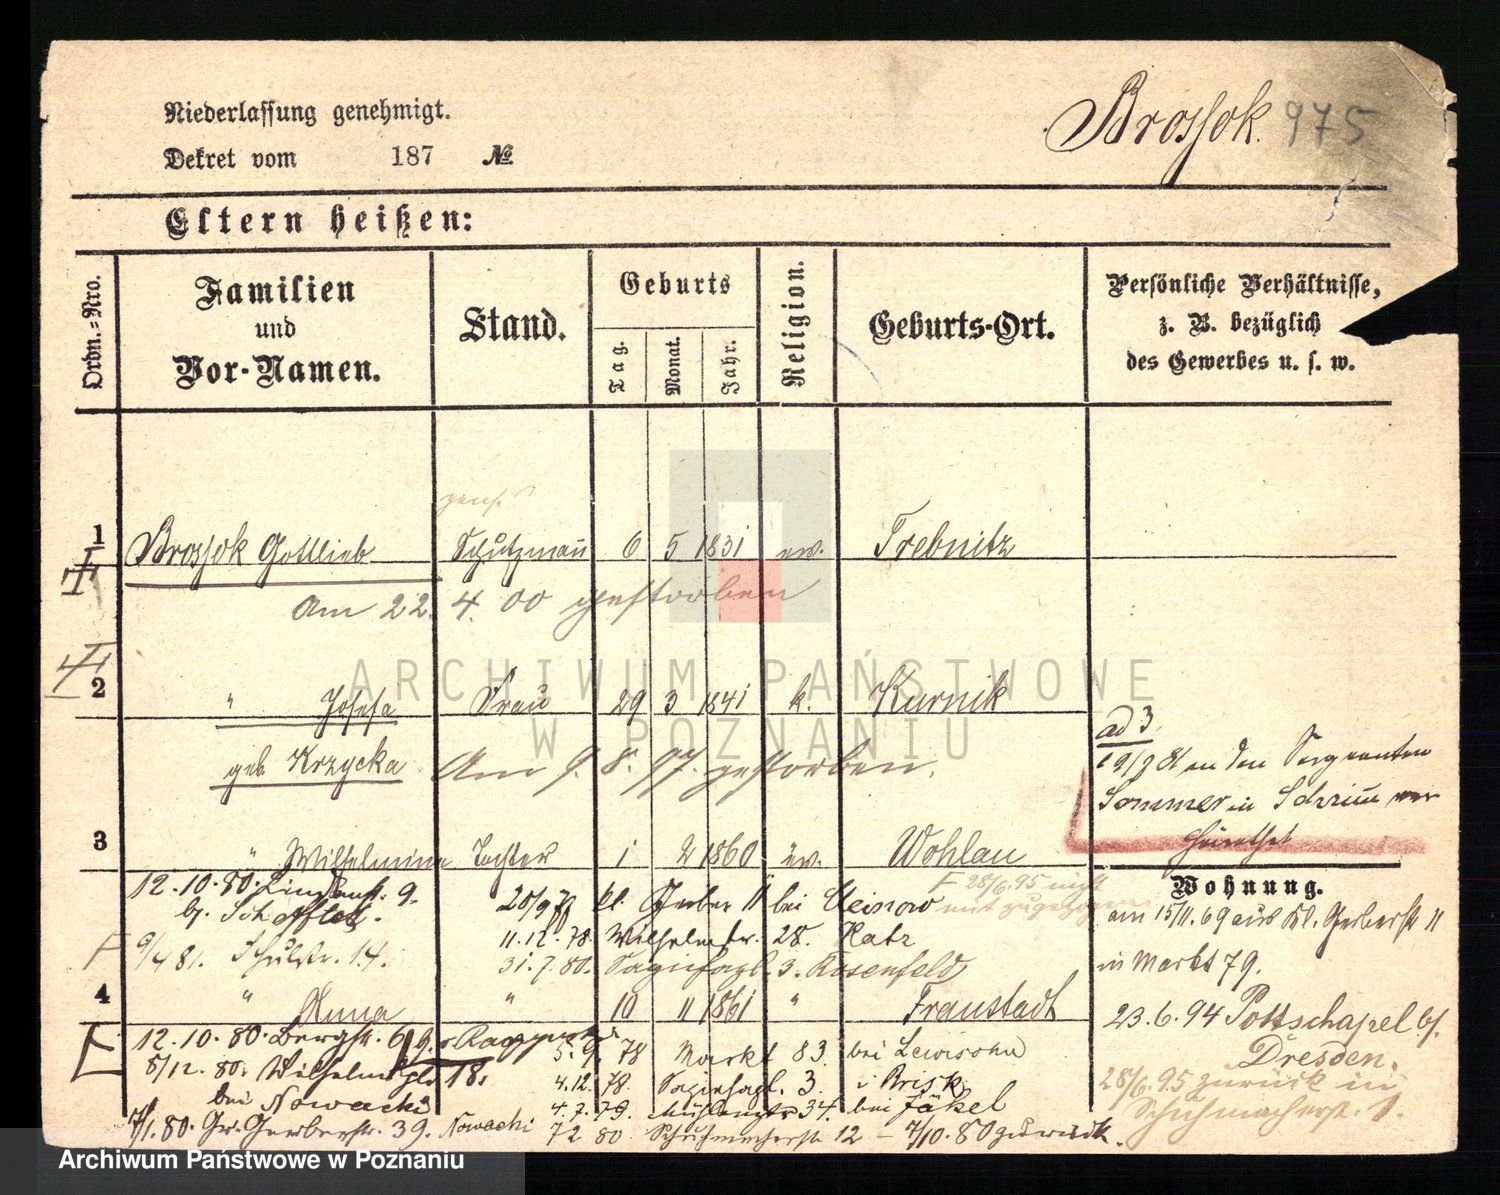 Niederlassung genehmigt.
Dekret vom 187 №
Brossok. 975
Eltern heißen:
Ordn.=Nro.
Familien
und
Vor-Namen.
Stand.
Geburts
Tag.
Monat.
Jahr.
Religion.
Geburts-Ort.
Persönliche Verhältnisse,
z. B. bezüglich
des Gewerbes u. s. w.
1 Brossok Gottlieb Schutzmann 6 5 1831 ev. Trebnitz
Am 22. 4. 00 gestorben
2 " Josefa Frau 29 3 1841 k. Kurnik
geb. Krzycka Am 9. 8. 97. gestorben.
ad 3
an den Sergeanten
Sommer in Schrimm ver
heirathet
3 " Wilhelmina Tochter 1 2 1860 ev. Wohlau
Wohnung.
12.10.80. 9.
F 28/6.95 nicht
mit zugezogen
kl. Gerber 11 bei
am 15/11.69 aus Kl. Gerberstr 11
11.12.78. Wilhelmstr. 28. Katz
9/4 81. Schulstr. 14.
31.7.80. 3. Rosenfeld
in Markt 79.
4 " Anna " 10 11 1861 " Fraustadt
23.6.94 Pottschapel b/.
Dresden.
12.10.80. Bergstr. 6
5.9. 78 Markt 83. bei Lewisohn
8/12.80. 18.
4.12.78. 3. Brisk
28/6.95 zurück in
Schuhmacherstr. 1.
bei Nowacki
4.7.79. 34. bei Jäkel
7/1.80. Gr. Gerberstr. 39. Nowacki 7 2 80 Schuhmacherstr 12 — 7/10.80 zurück.
ARCHIWUM PAŃSTWOWE
W POZNANIU
Archiwum Państwowe w Poznaniu